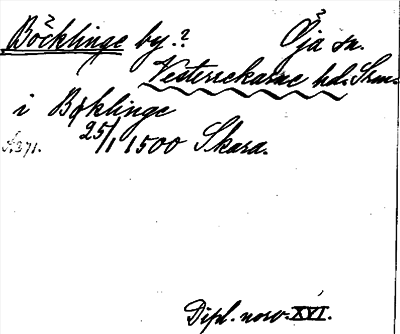 Böcklinge by.? Öja sn.
Vesterrekarne hd. Srm.
i Boklinge
25/1 1500 Skara.
A.271.
Dipl. norv. XVI.